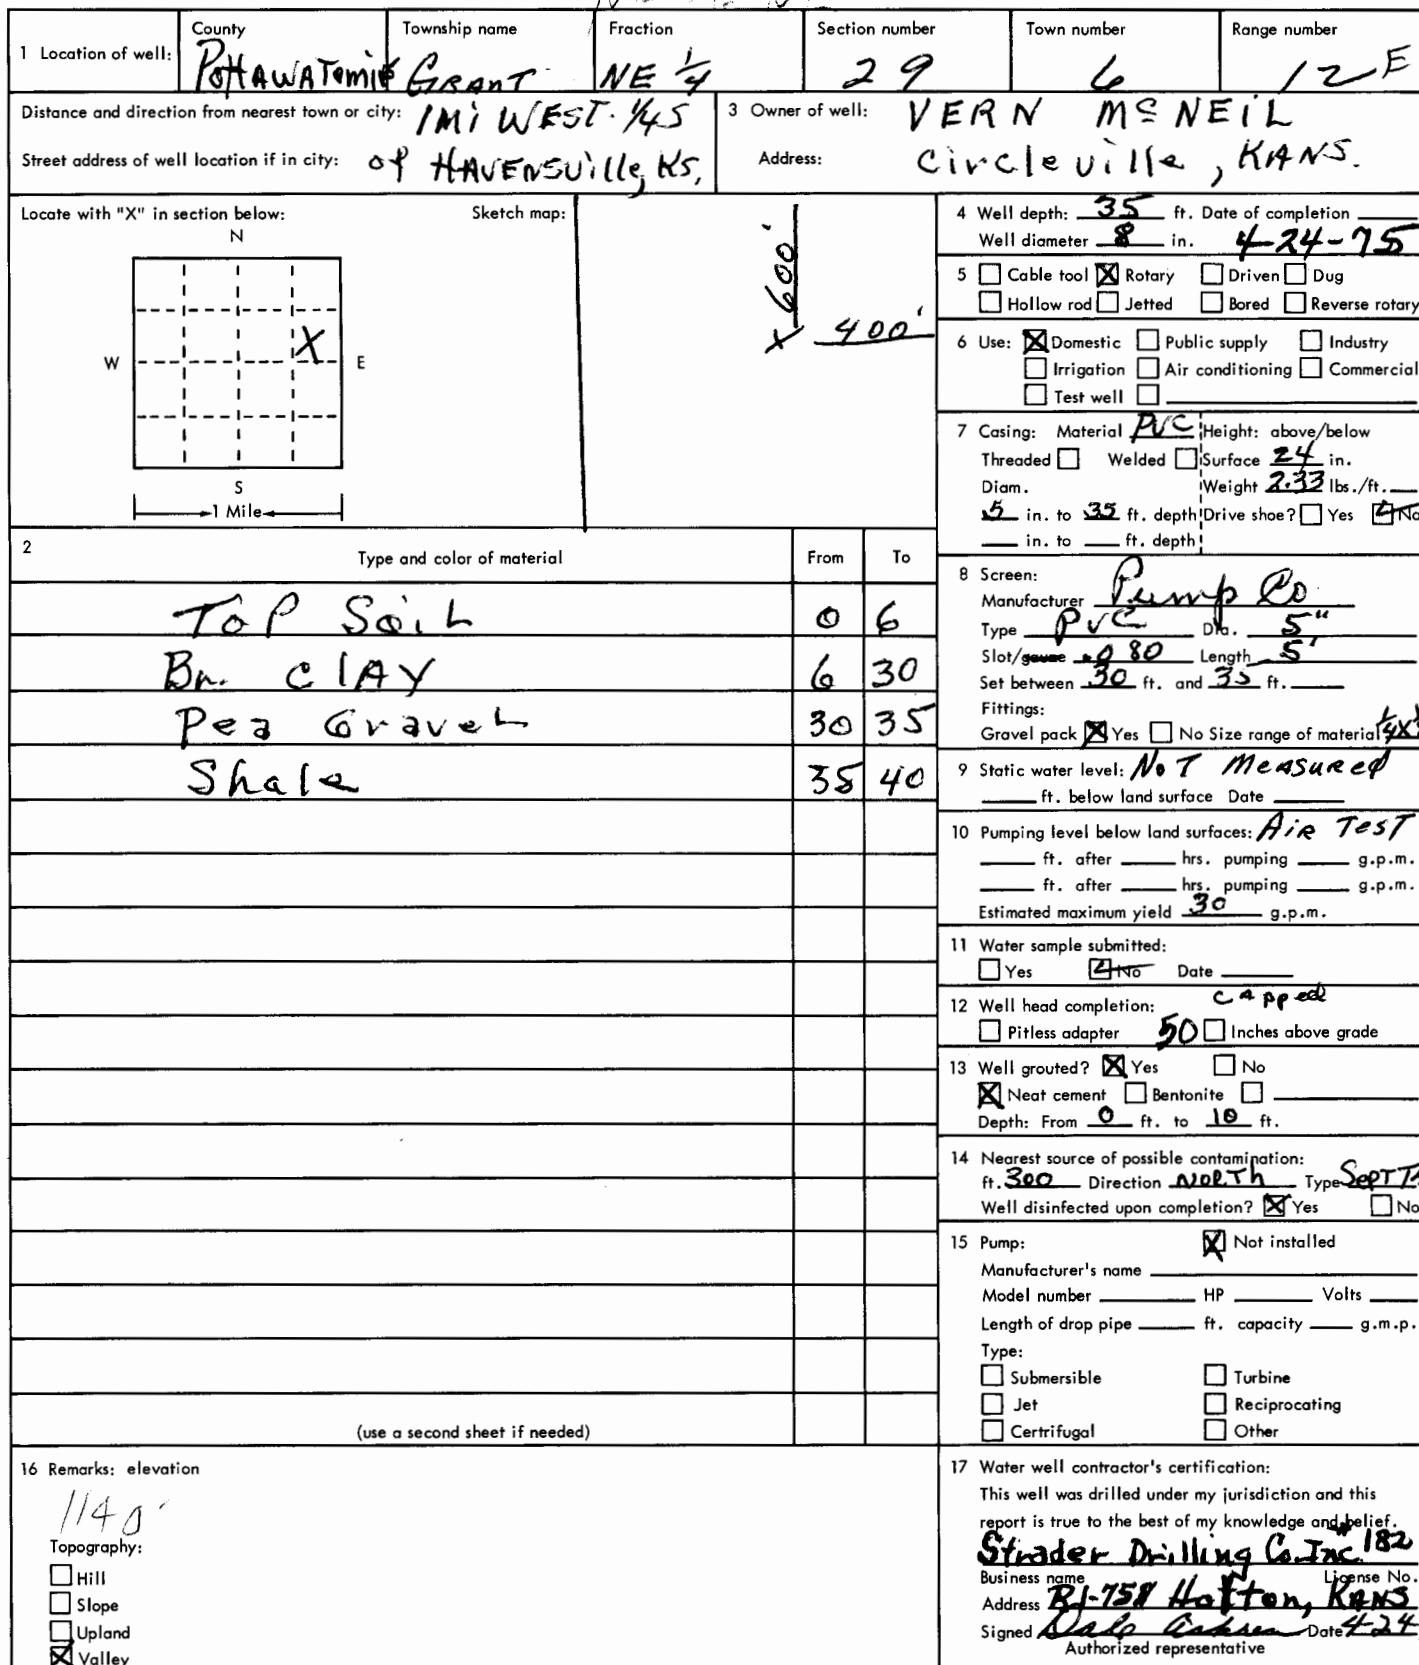 County Township name Fraction Section number Town number Range number
1 Location of well: Pottawatomie Grant NE 1/4 29 6 12 E
Distance and direction from nearest town or city: 1Mi WEST. 1/4 S
Street address of well location if in city: of HAVENSVille, KS,
3 Owner of well: VERN McNEIL
Address: Circleville, KANS.
Locate with "X" in section below: Sketch map:
N
W X E
S
1 Mile
X 600'
400'
2 Type and color of material From To
Top Soil 0 6
Bn. CLAY 6 30
Pea Gravel 30 35
Shale 35 40
(use a second sheet if needed)
4 Well depth: 35 ft. Date of completion
Well diameter 8 in. 4-24-75
5 ☐ Cable tool ☒ Rotary ☐ Driven ☐ Dug
☐ Hollow rod ☐ Jetted ☐ Bored ☐ Reverse rotary
6 Use: ☒ Domestic ☐ Public supply ☐ Industry
☐ Irrigation ☐ Air conditioning ☐ Commercial
☐ Test well ☐
7 Casing: Material PVC Height: above/below
Threaded ☐ Welded ☐ Surface 24 in.
Diam. Weight 2.33 lbs./ft.
5 in. to 35 ft. depth Drive shoe? ☐ Yes ☒ No
in. to ft. depth
8 Screen:
Manufacturer Pump Co
Type PVC Dia. 5"
Slot/gauze .080 Length 5'
Set between 30 ft. and 35 ft.
Fittings:
Gravel pack ☒ Yes ☐ No Size range of material 1/4 X
9 Static water level: Not Measured
ft. below land surface Date
10 Pumping level below land surfaces: Air Test
ft. after hrs. pumping g.p.m.
ft. after hrs. pumping g.p.m.
Estimated maximum yield 30 g.p.m.
11 Water sample submitted:
☐ Yes ☒ No Date
12 Well head completion: capped
☐ Pitless adapter 50 ☐ Inches above grade
13 Well grouted? ☒ Yes ☐ No
☒ Neat cement ☐ Bentonite ☐
Depth: From 0 ft. to 10 ft.
14 Nearest source of possible contamination:
ft. 300 Direction NORTH Type Sept T
Well disinfected upon completion? ☒ Yes ☐ No
15 Pump: ☒ Not installed
Manufacturer's name
Model number HP Volts
Length of drop pipe ft. capacity g.m.p.
Type:
☐ Submersible ☐ Turbine
☐ Jet ☐ Reciprocating
☐ Certrifugal ☐ Other
16 Remarks: elevation
1140'
Topography:
☐ Hill
☐ Slope
☐ Upland
☒ Valley
17 Water well contractor's certification:
This well was drilled under my jurisdiction and this
report is true to the best of my knowledge and belief.
Strader Drilling Co. Inc. #182
Business name License No.
Address R1-758 Holton, KANS
Signed Dale Date 4-24
Authorized representative